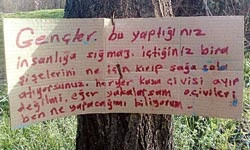 Gençler, bu yaptığınız
insanlığa sığmaz. içtiğiniz bira
şişelerini ne için kırıp sağa sola
atıyorsunuz. heryer kaza çivisi ayıp
değilmi, eğer yakalarsam o çivileri
ben ne yapacağımı biliyorum.